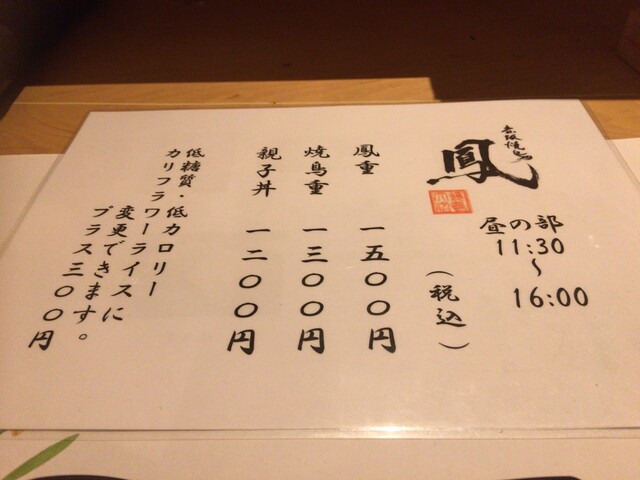 赤坂焼鳥
鳳
昼の部
11:30
～
16:00
（税込）
鳳重 一五〇〇円
焼鳥重 一三〇〇円
親子丼 一二〇〇円
低糖質・低カロリー
カリフラワーライスに
変更できます。
プラス三〇〇円